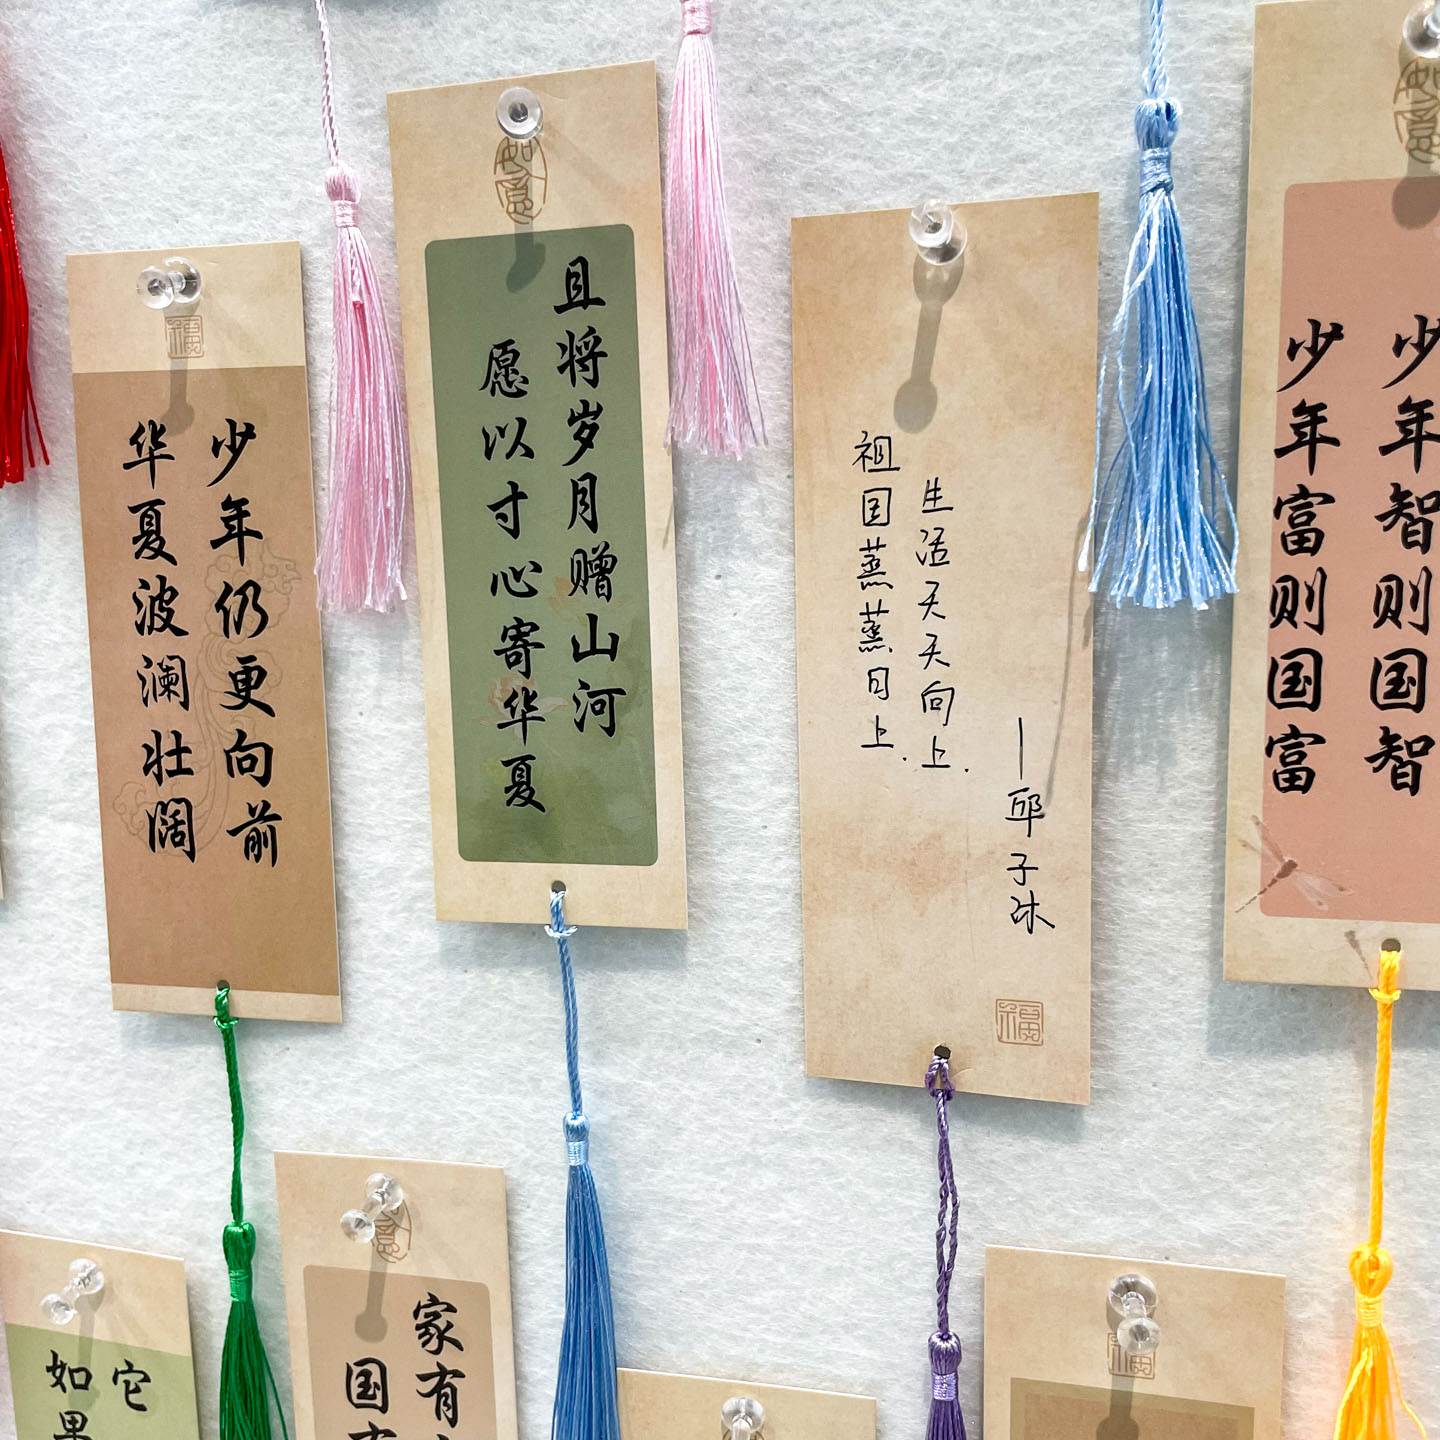 福
少年仍更向前
华夏波澜壮阔
如意
且将岁月赠山河
愿以寸心寄华夏
祖国蒸蒸日上.
生活天天向上.
—邱子沐
福
如意
少年智则国智
少年富则国富
它
如果
意
家有
国
福